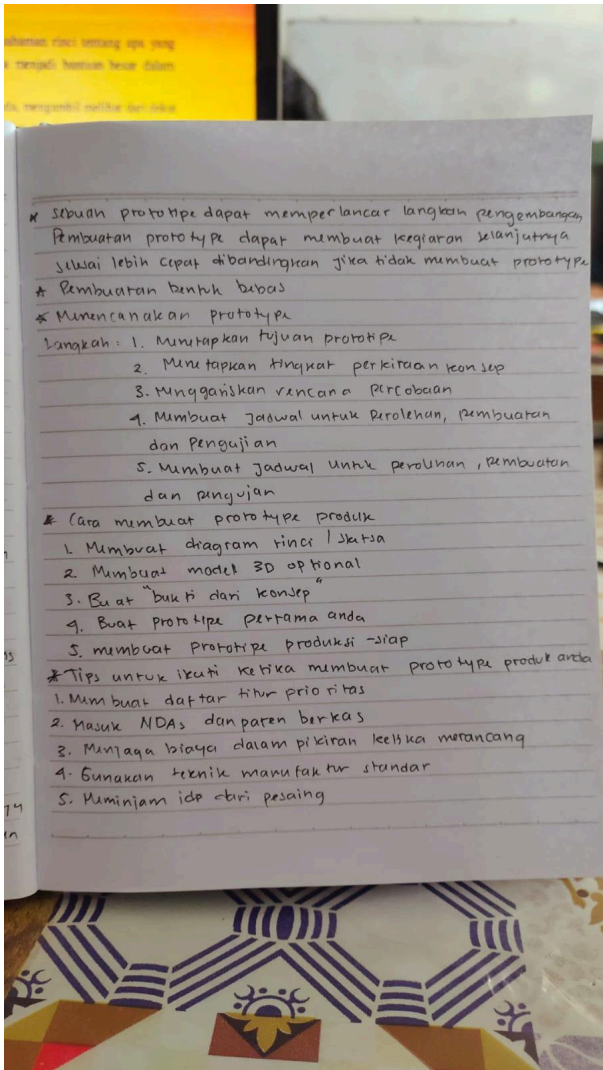 ahaman rinci tentang apa yang
menjadi bantuan besar dalam
mengambil melihat dari dekat
* Sebuah prototipe dapat memperlancar langkah pengembangan
Pembuatan prototype dapat membuat kegiatan selanjutnya
selesai lebih cepat dibandingkan jika tidak membuat prototype
* Pembuatan bentuk bebas
* Merencanakan prototype
Langkah : 1. Menetapkan tujuan prototipe
2. Menetapkan tingkat perkiraan konsep
3. Menggariskan rencana percobaan
4. Membuat jadwal untuk perolehan, pembuatan
dan Pengujian
5. Membuat jadwal untuk perolehan, pembuatan
dan pengujan
* Cara membuat prototype produk
1. Membuat diagram rinci / sketsa
2. Membuat model 3D optional
3. Buat "bukti dari konsep"
4. Buat prototipe pertama anda
5. membuat prototipe produksi -siap
* Tips untuk ikuti ketika membuat prototype produk anda
1. Membuat daftar fitur prioritas
2. Masuk NDAs dan paten berkas
3. Menjaga biaya dalam pikiran ketika merancang
4. Gunakan teknik manufaktur standar
5. Meminjam ide dari pesaing